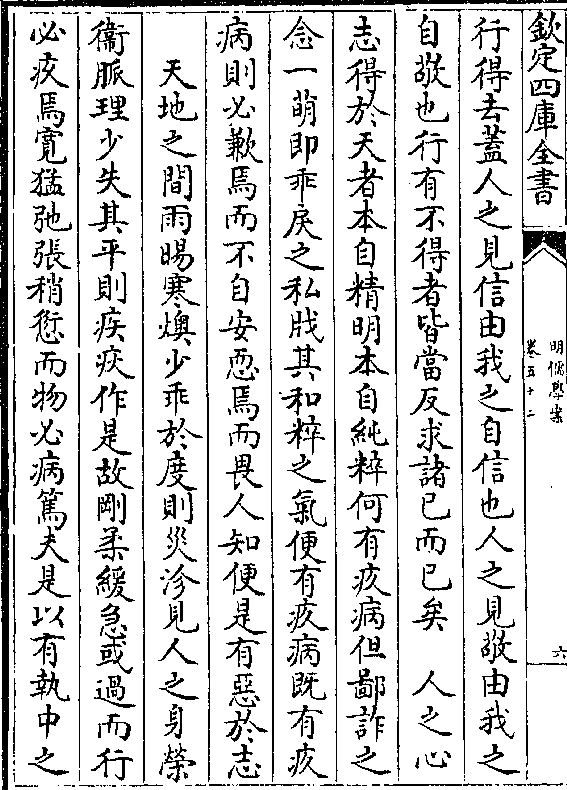 欽定四庫全書
明儒學案
卷五十二
六
行得去蓋人之見信由我之自信也人之見敬由我之
自敬也行有不得者皆當反求諸已而已矣　人之心
志得於天者本自精明本自純粹何有疚病但鄙詐之
念一萌即乖戾之私戕其和粹之氣便有疚病既有疚
病則必歉焉而不自安恧焉而畏人知便是有惡於志
天地之間雨暘寒燠少乖於度則災沴見人之身榮
衞脈理少失其平則疾疢作是故剛柔緩急或過而行
必疚焉寛猛弛張稍愆而物必病篤夫是以有執中之